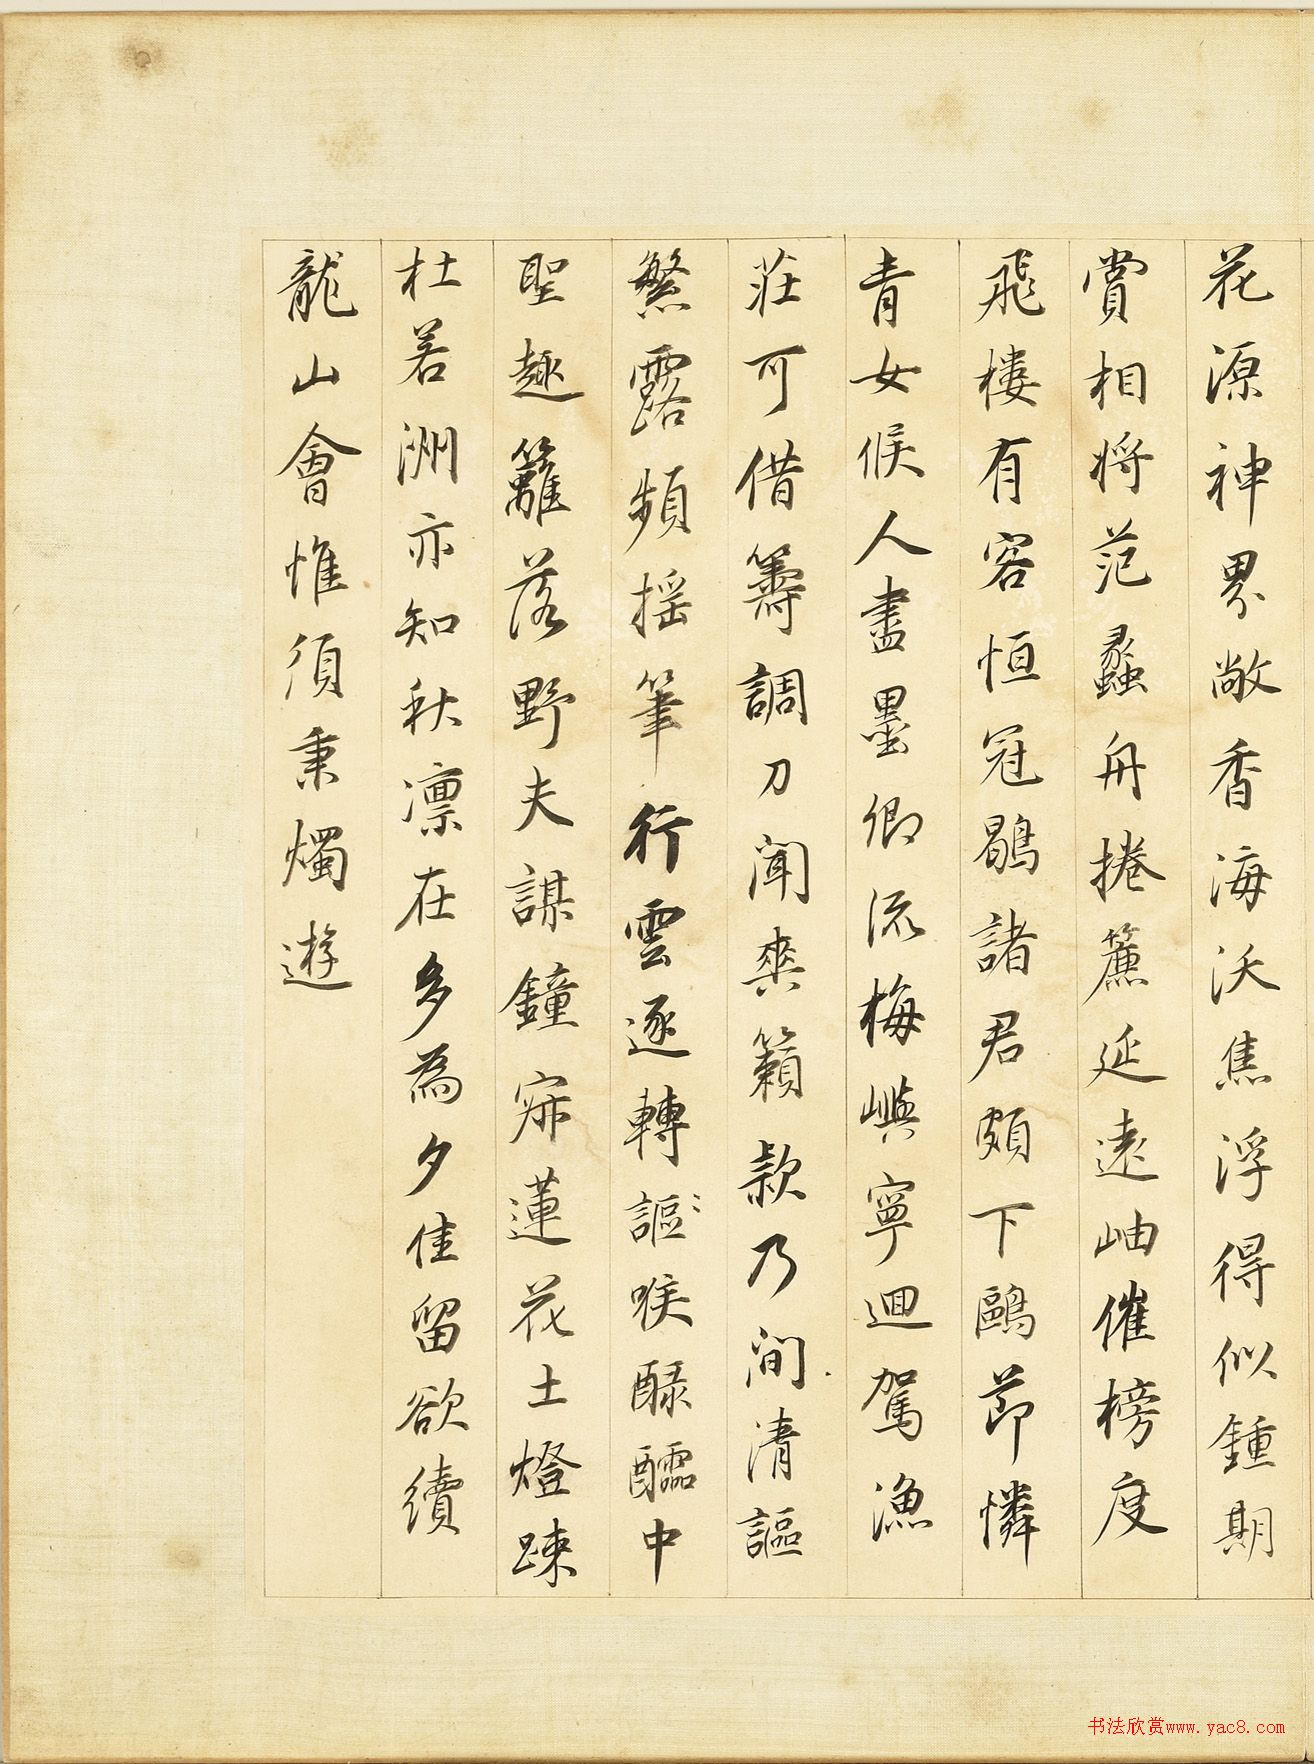 花源神界敞香海沃焦浮得似鍾期
賞相將范蠡舟捲簾延遠岫催榜度
飛樓有客恒冠鶡諸君頗下鷗節憐
青女候人盡墨卿流梅嶼寧迴駕漁
莊可借籌調刀聞爽籟款乃間清謳
繁露頻搖筆行雲逐轉謳喉醁醽中
聖趣籬落野夫謀鐘寂蓮花土燈踈
杜若洲亦知秋凛在多為夕佳留欲續
龍山會惟須秉燭遊
书法欣赏www.yac8.com